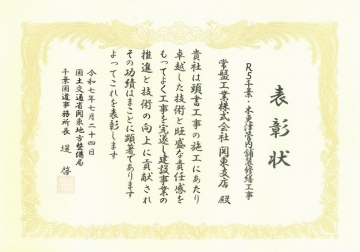 表彰状
R5千葉・木更津管内舗装修繕工事
常盤工業株式会社 関東支店 殿
貴社は頭書工事の施工にあたり
卓越した技術と旺盛な責任感を
もってよく工事を完遂し建設事業の
推進と技術の向上に貢献され
その功績はまことに顕著であります
よってこれを表彰します
令和七年七月二十四日
国土交通省関東地方整備局
千葉国道事務所長 堤 啓